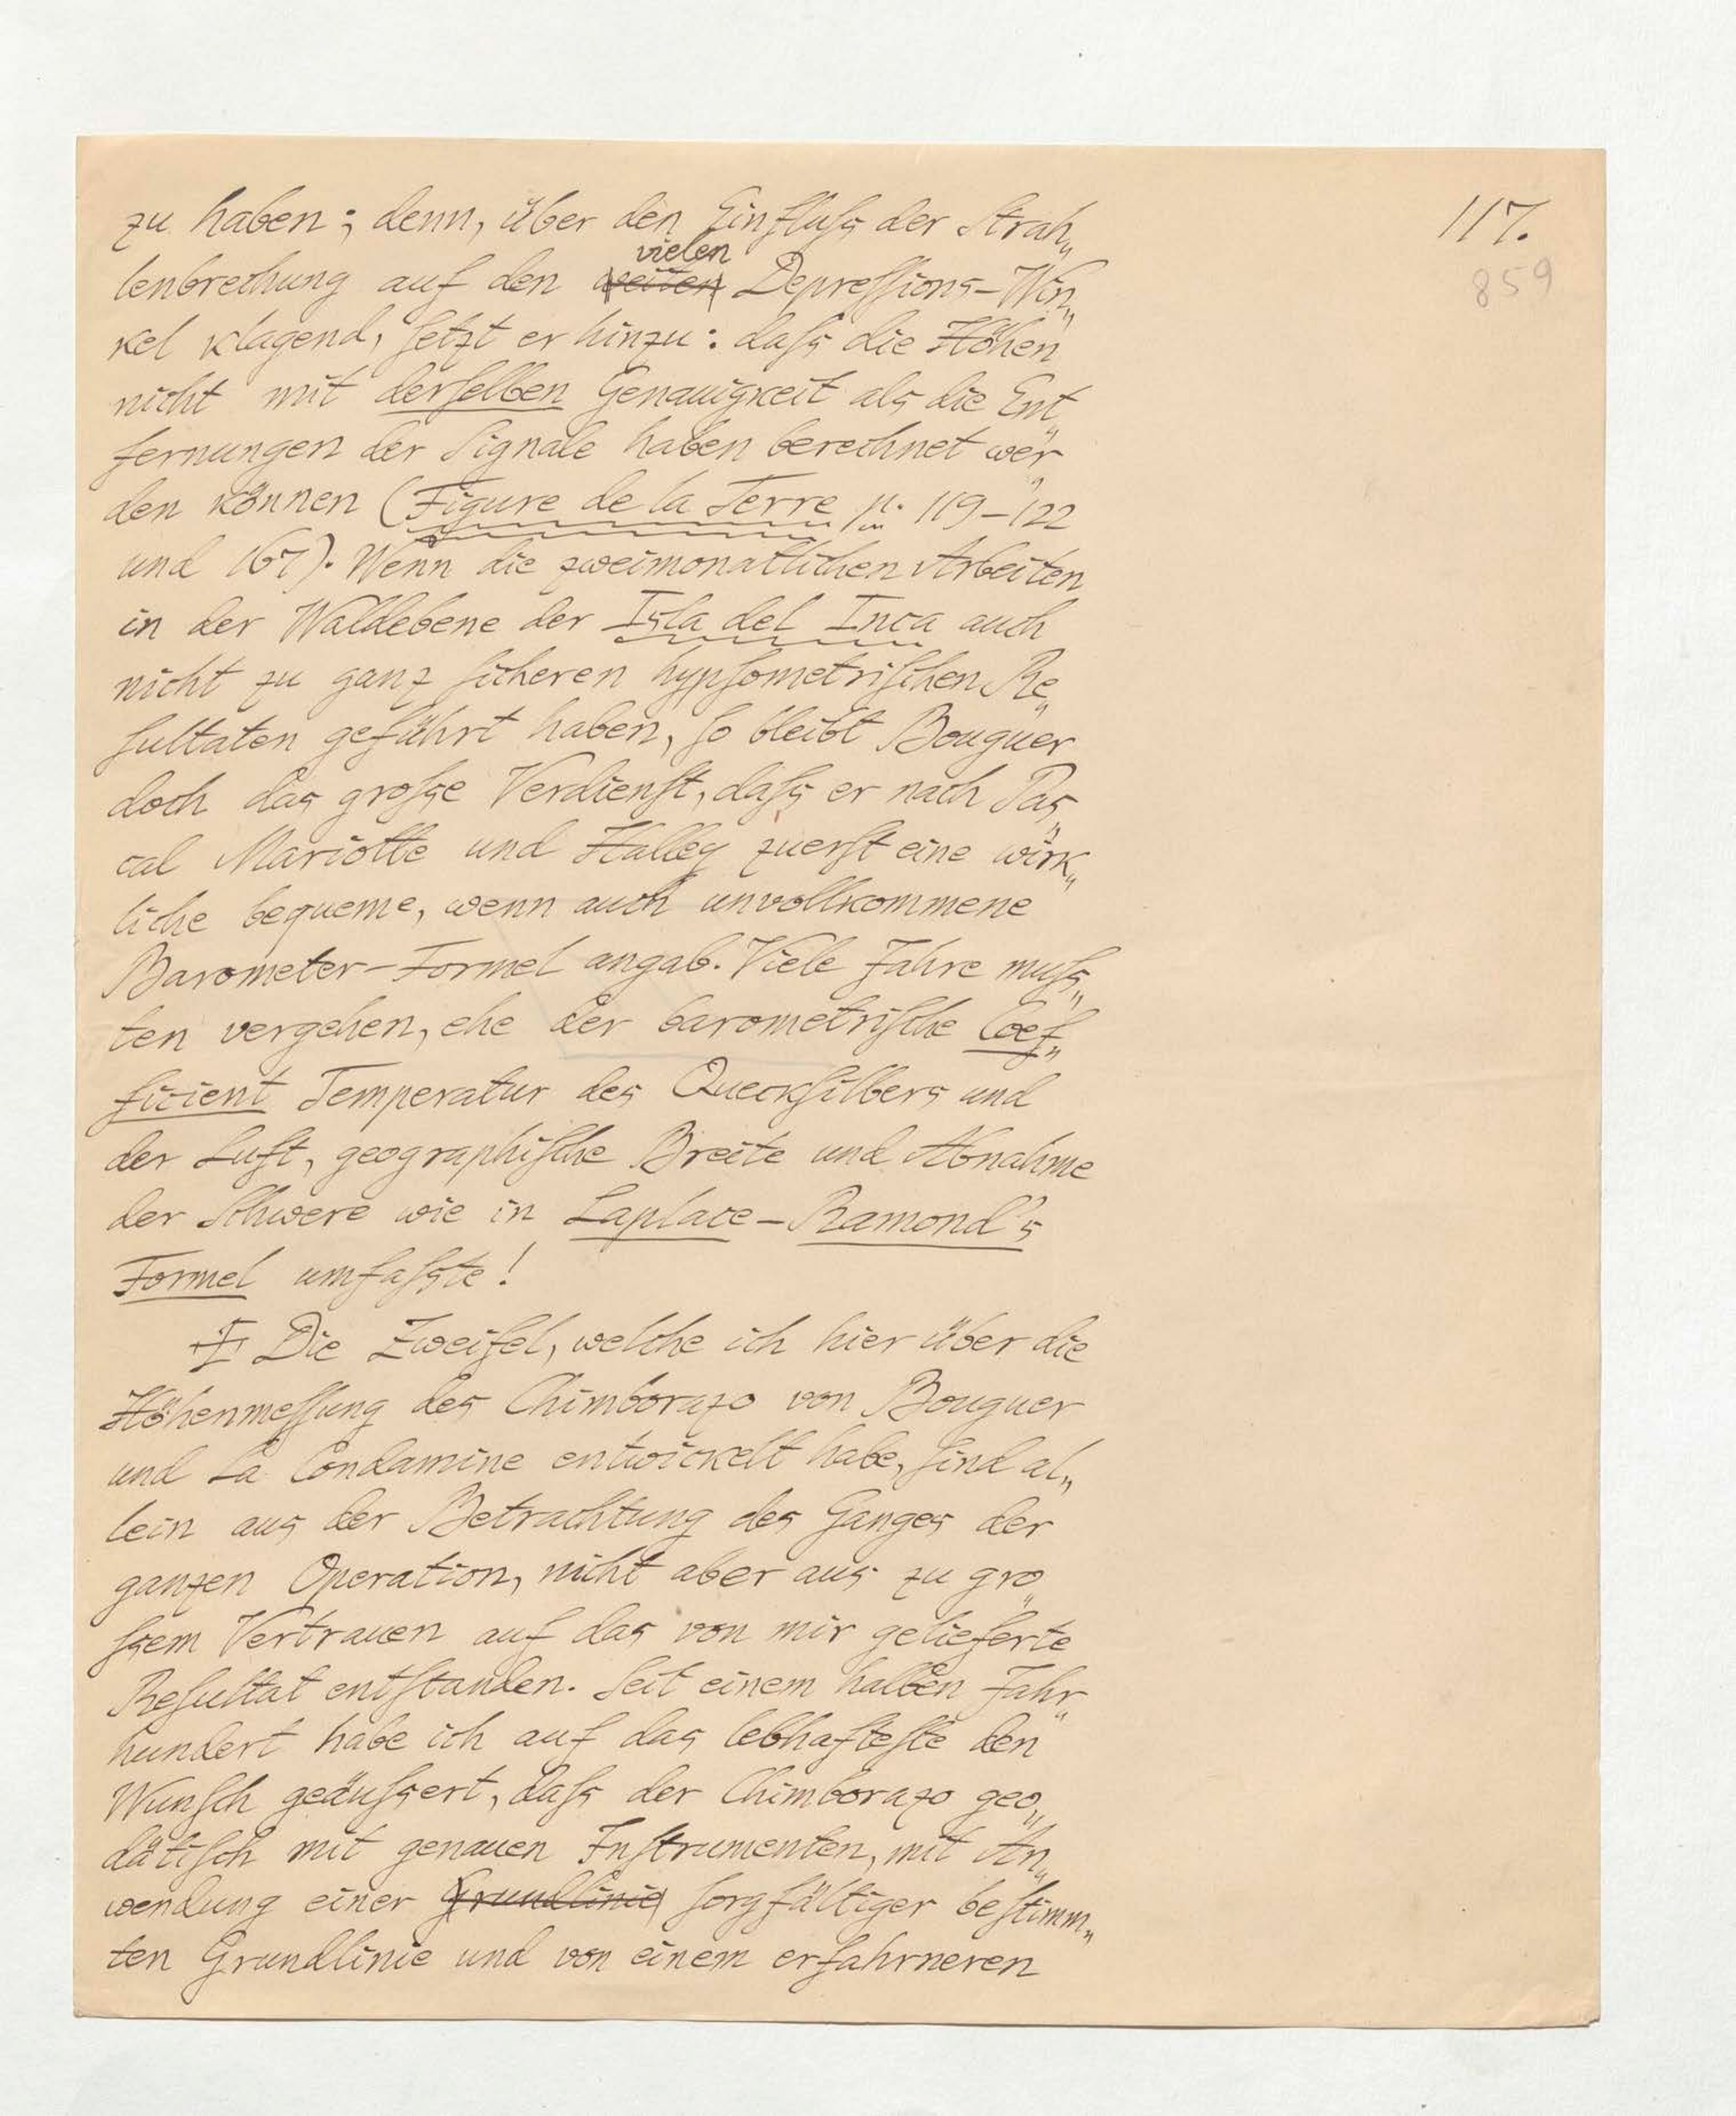 117.
859
zu haben; denn, über den Einfluſs der Strah„
lenbrechung auf den vielen weiten Depreſſions-Win„
kel klagend, ſetzt er hinzu: daſs die Höhen
nicht mit derſelben Genauigkeit als die Ent„
fernungen der Signale haben berechnet wer„
den können (Figure de la Terre p. 119–122
und 167). Wenn die zweimonatlichen Arbeiten
in der Waldebene der Isla del Inca auch
nicht zu ganz ſicheren hypſometriſchen Re„
ſultaten geführt haben, ſo bleibt Bouguer
doch das groſse Verdienſt, daſs er nach Pas„
cal Mariotte und Halley zuerſt eine wirk„
liche bequeme, wenn auch unvollkommene
Barometer-Formel angab. Viele Jahre muſs„
ten vergehen, ehe der barometriſche Coef„
ficient Temperatur des Queckſilbers und
der Luft, geographiſche Breite und Abnahme
der Schwere wie in Laplace-Ramond's
Formel umfaſste!
Die Zweifel, welche ich hier über die
Höhenmeſſung des Chimborazo von Bouguer
und La Condamine entwickelt habe, ſind al„
lein aus der Betrachtung des Ganges der
ganzen Operation, nicht aber aus zu gro„
ſsem Vertrauen auf das von mir gelieferte
Reſultat entſtanden. Seit einem halben Jahr„
hundert habe ich auf das lebhafteſte den
Wunſch geäuſsert, daſs der Chimborazo geo„
dätiſch mit genauen Inſtrumenten, mit An„
wendung einer Grundlinie ſorgfältiger beſtimm„
ten Grundlinie und von einem erfahrneren